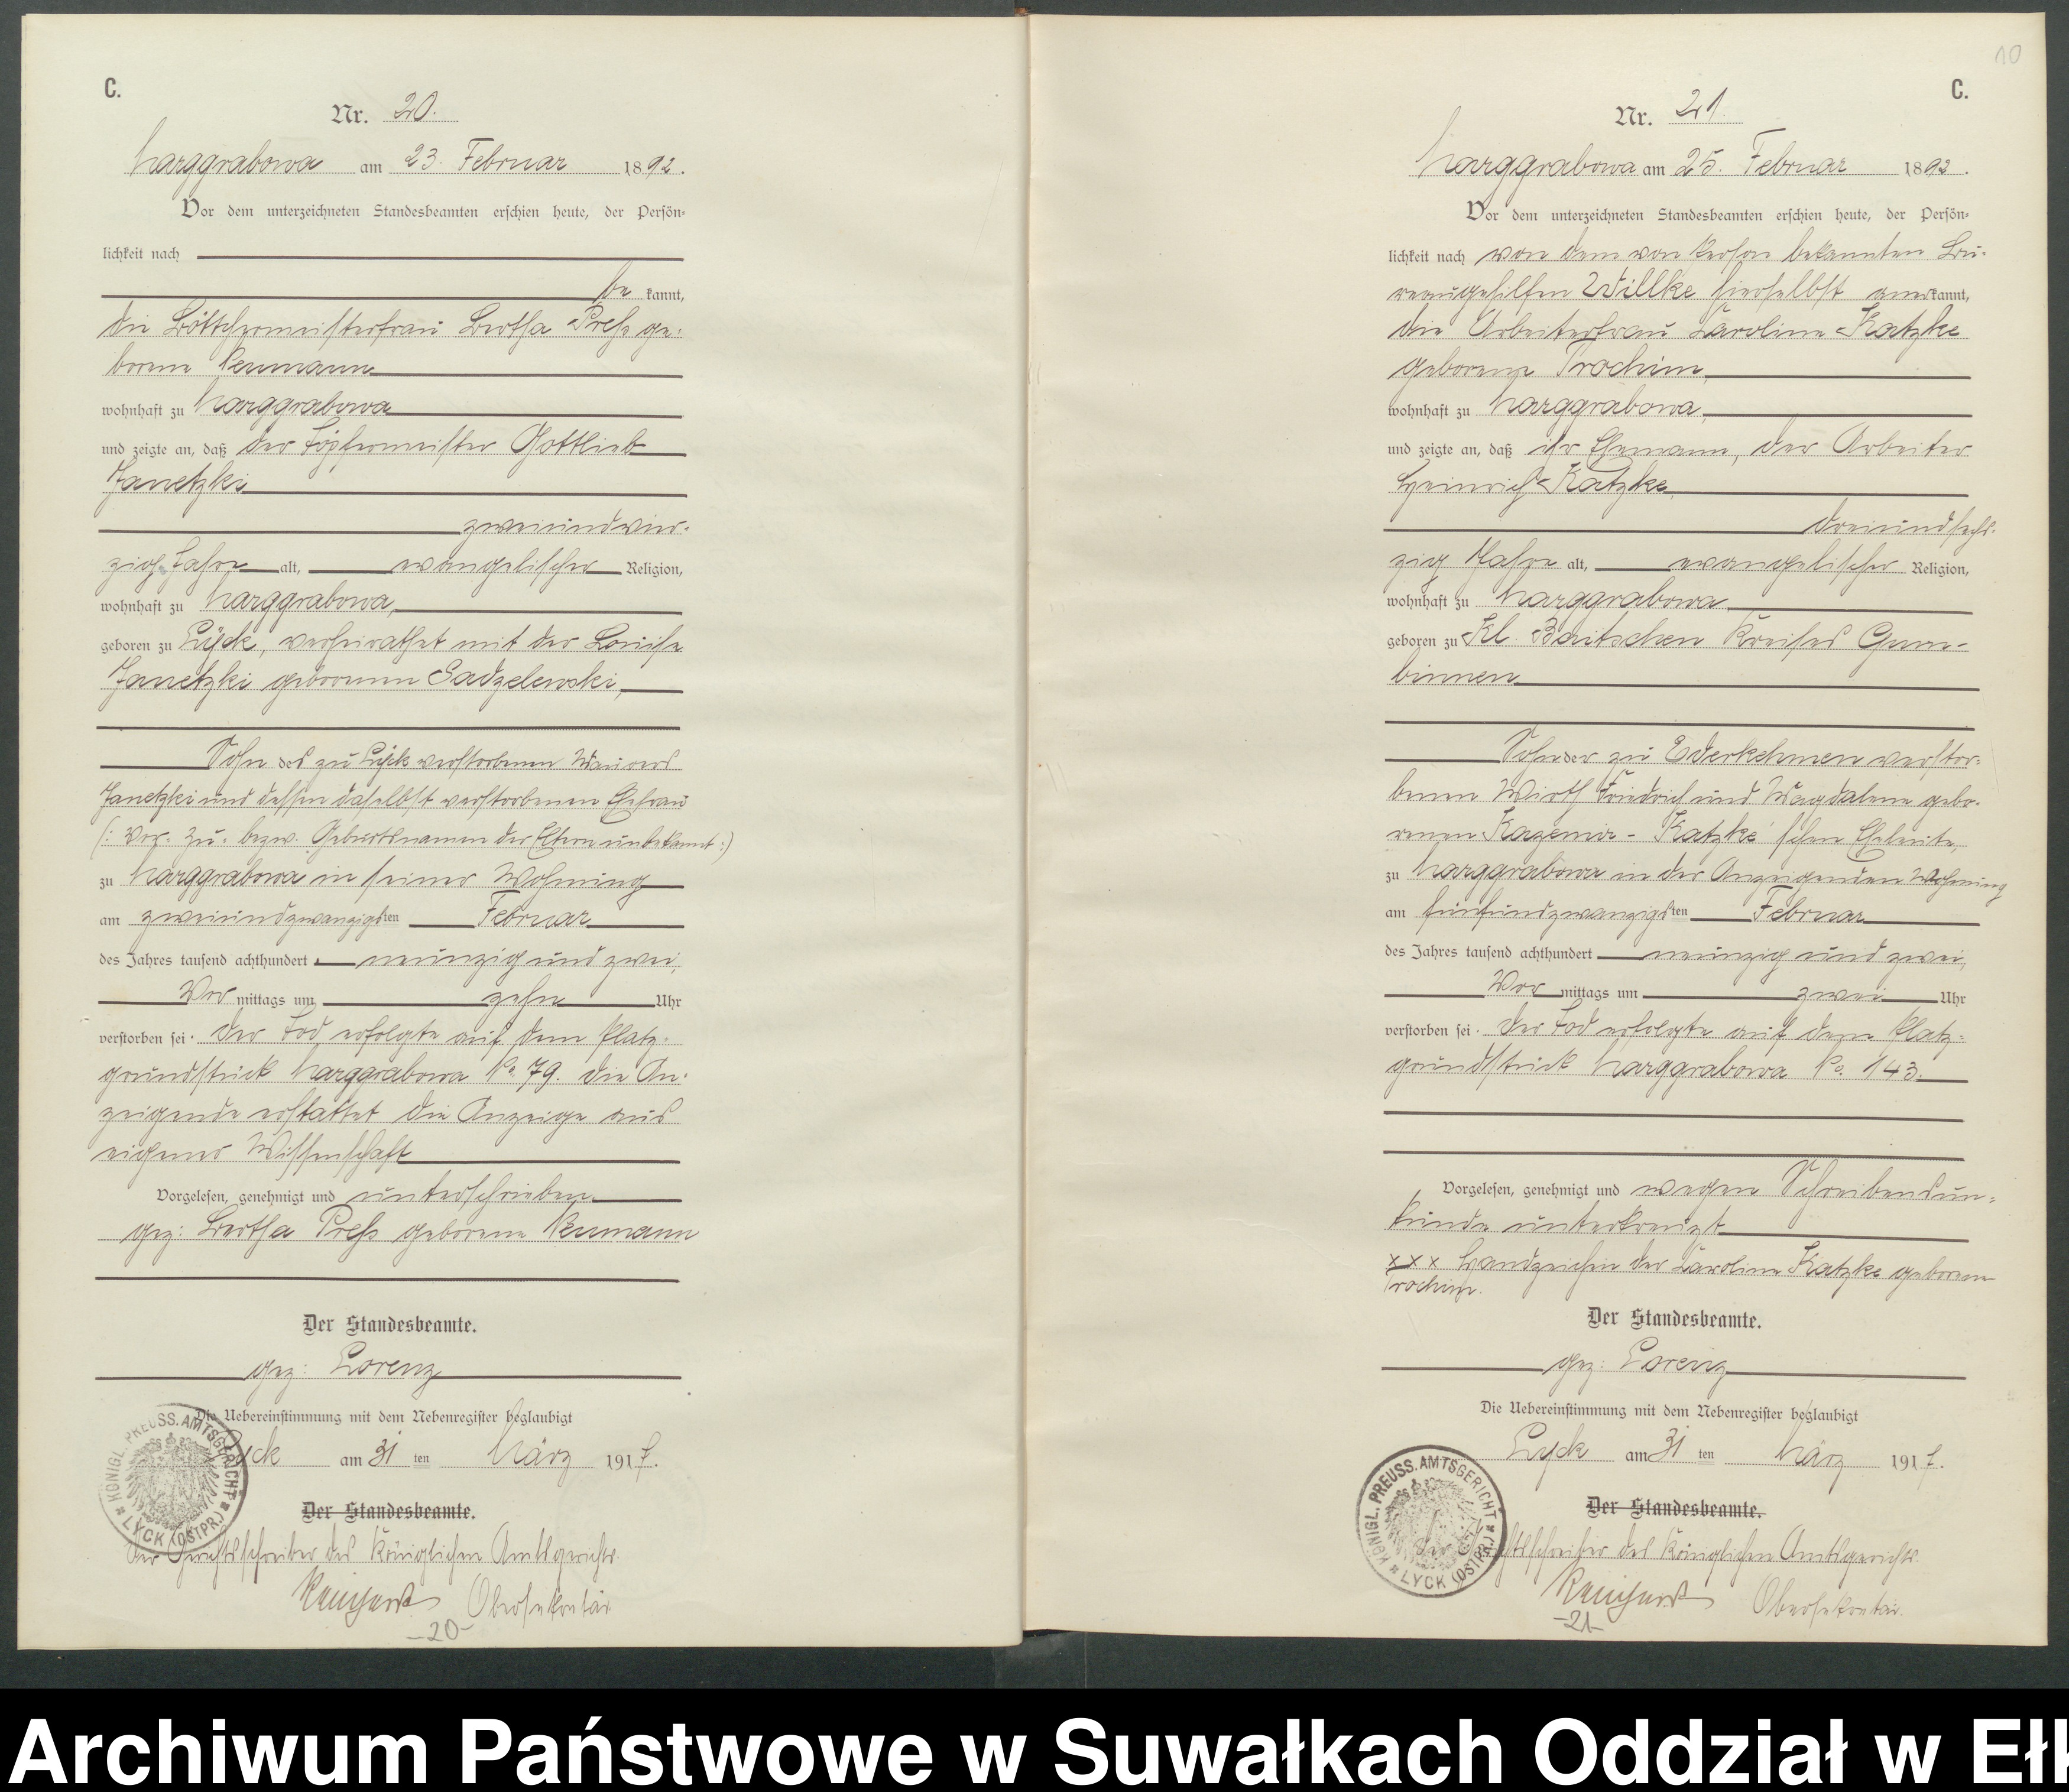 C.
Nr. 20.
Marggrabowa am 23. Februar 1892.
Vor dem unterzeichneten Standesbeamten erschien heute, der Persön-
lichkeit nach
be kannt,
die Böttchermeisterfrau Bertha Press ge-
borene Neumann
wohnhaft zu Marggrabowa
und zeigte an, daß der Töpfermeister Gottlieb
Janetzki
zweiundvier-
zig Jahre alt, evangelischer Religion,
wohnhaft zu Marggrabowa,
geboren zu Lyck, verheirathet mit der Louise
Janetzki geborenen Sadzelewski,
Sohn des zu Lyck verstorbenen Maurers
Janetzki und dessen daselbst verstorbenen Ehefrau
(: Vor- Zu- bezw. Geburtsnamen der Eltern unbekannt :)
zu Marggrabowa in seiner Wohnung
am zweiundzwanzigsten Februar
des Jahres tausend achthundert neunzig und zwei,
Vor mittags um zehn Uhr
verstorben sei. Der Tod erfolgte auf dem Platz-
grundstück Marggrabowa No. 79. Die An-
zeigende erstattet die Anzeige aus
eigener Wissenschaft
Vorgelesen, genehmigt und unterschrieben.
gez: Bertha Press geborene Neumann
Der Standesbeamte.
gez: Lorenz
Die Uebereinstimmung mit dem Nebenregister beglaubigt
Lyck am 31 ten März 1917.
Der Standesbeamte.
Der Gerichtsschreiber des Königlichen Amtsgerichts.
Obersekretär
KÖNIGL. PREUSS. AMTSGERICHT * LYCK (OSTPR.) *
-20-
10
C.
Nr. 21.
Marggrabowa am 25. Februar 1892.
Vor dem unterzeichneten Standesbeamten erschien heute, der Persön-
lichkeit nach von dem von Person bekannten Bu-
reaugehilfen Willke hierselbst anerkannt,
die Arbeiterfrau Caroline Katzke
geborene Trochim,
wohnhaft zu Marggrabowa,
und zeigte an, daß ihr Ehemann, der Arbeiter
Heinrich Katzke,
dreiundsech-
zig Jahre alt, evangelischer Religion,
wohnhaft zu Marggrabowa
geboren zu Kl. Baitschen Kreises Gum-
binnen
Sohn der zu Ederkehmen verstor-
benen Wirth Friedrich und Magdalene gebo-
renen Kazemir - Katzke'schen Eheleute,
zu Marggrabowa in der Anzeigenden Wohnung
am fünfundzwanzigsten Februar
des Jahres tausend achthundert neunzig und zwei,
Vor mittags um zwei Uhr
verstorben sei. Der Tod erfolgte auf dem Platz-
grundstück Marggrabowa No. 143.
Vorgelesen, genehmigt und wegen Schreibensun-
kunde unterkreuzt
xxx Handzeichen der Caroline Katzke geborene
Trochim.
Der Standesbeamte.
gez: Lorenz
Die Uebereinstimmung mit dem Nebenregister beglaubigt
Lyck am 31 ten März 1917.
Der Standesbeamte.
Der Gerichtsschreiber des Königlichen Amtsgerichts.
Obersekretär.
KÖNIGL. PREUSS. AMTSGERICHT * LYCK (OSTPR.) *
-21-
Archiwum Państwowe w Suwałkach Oddział w Eł